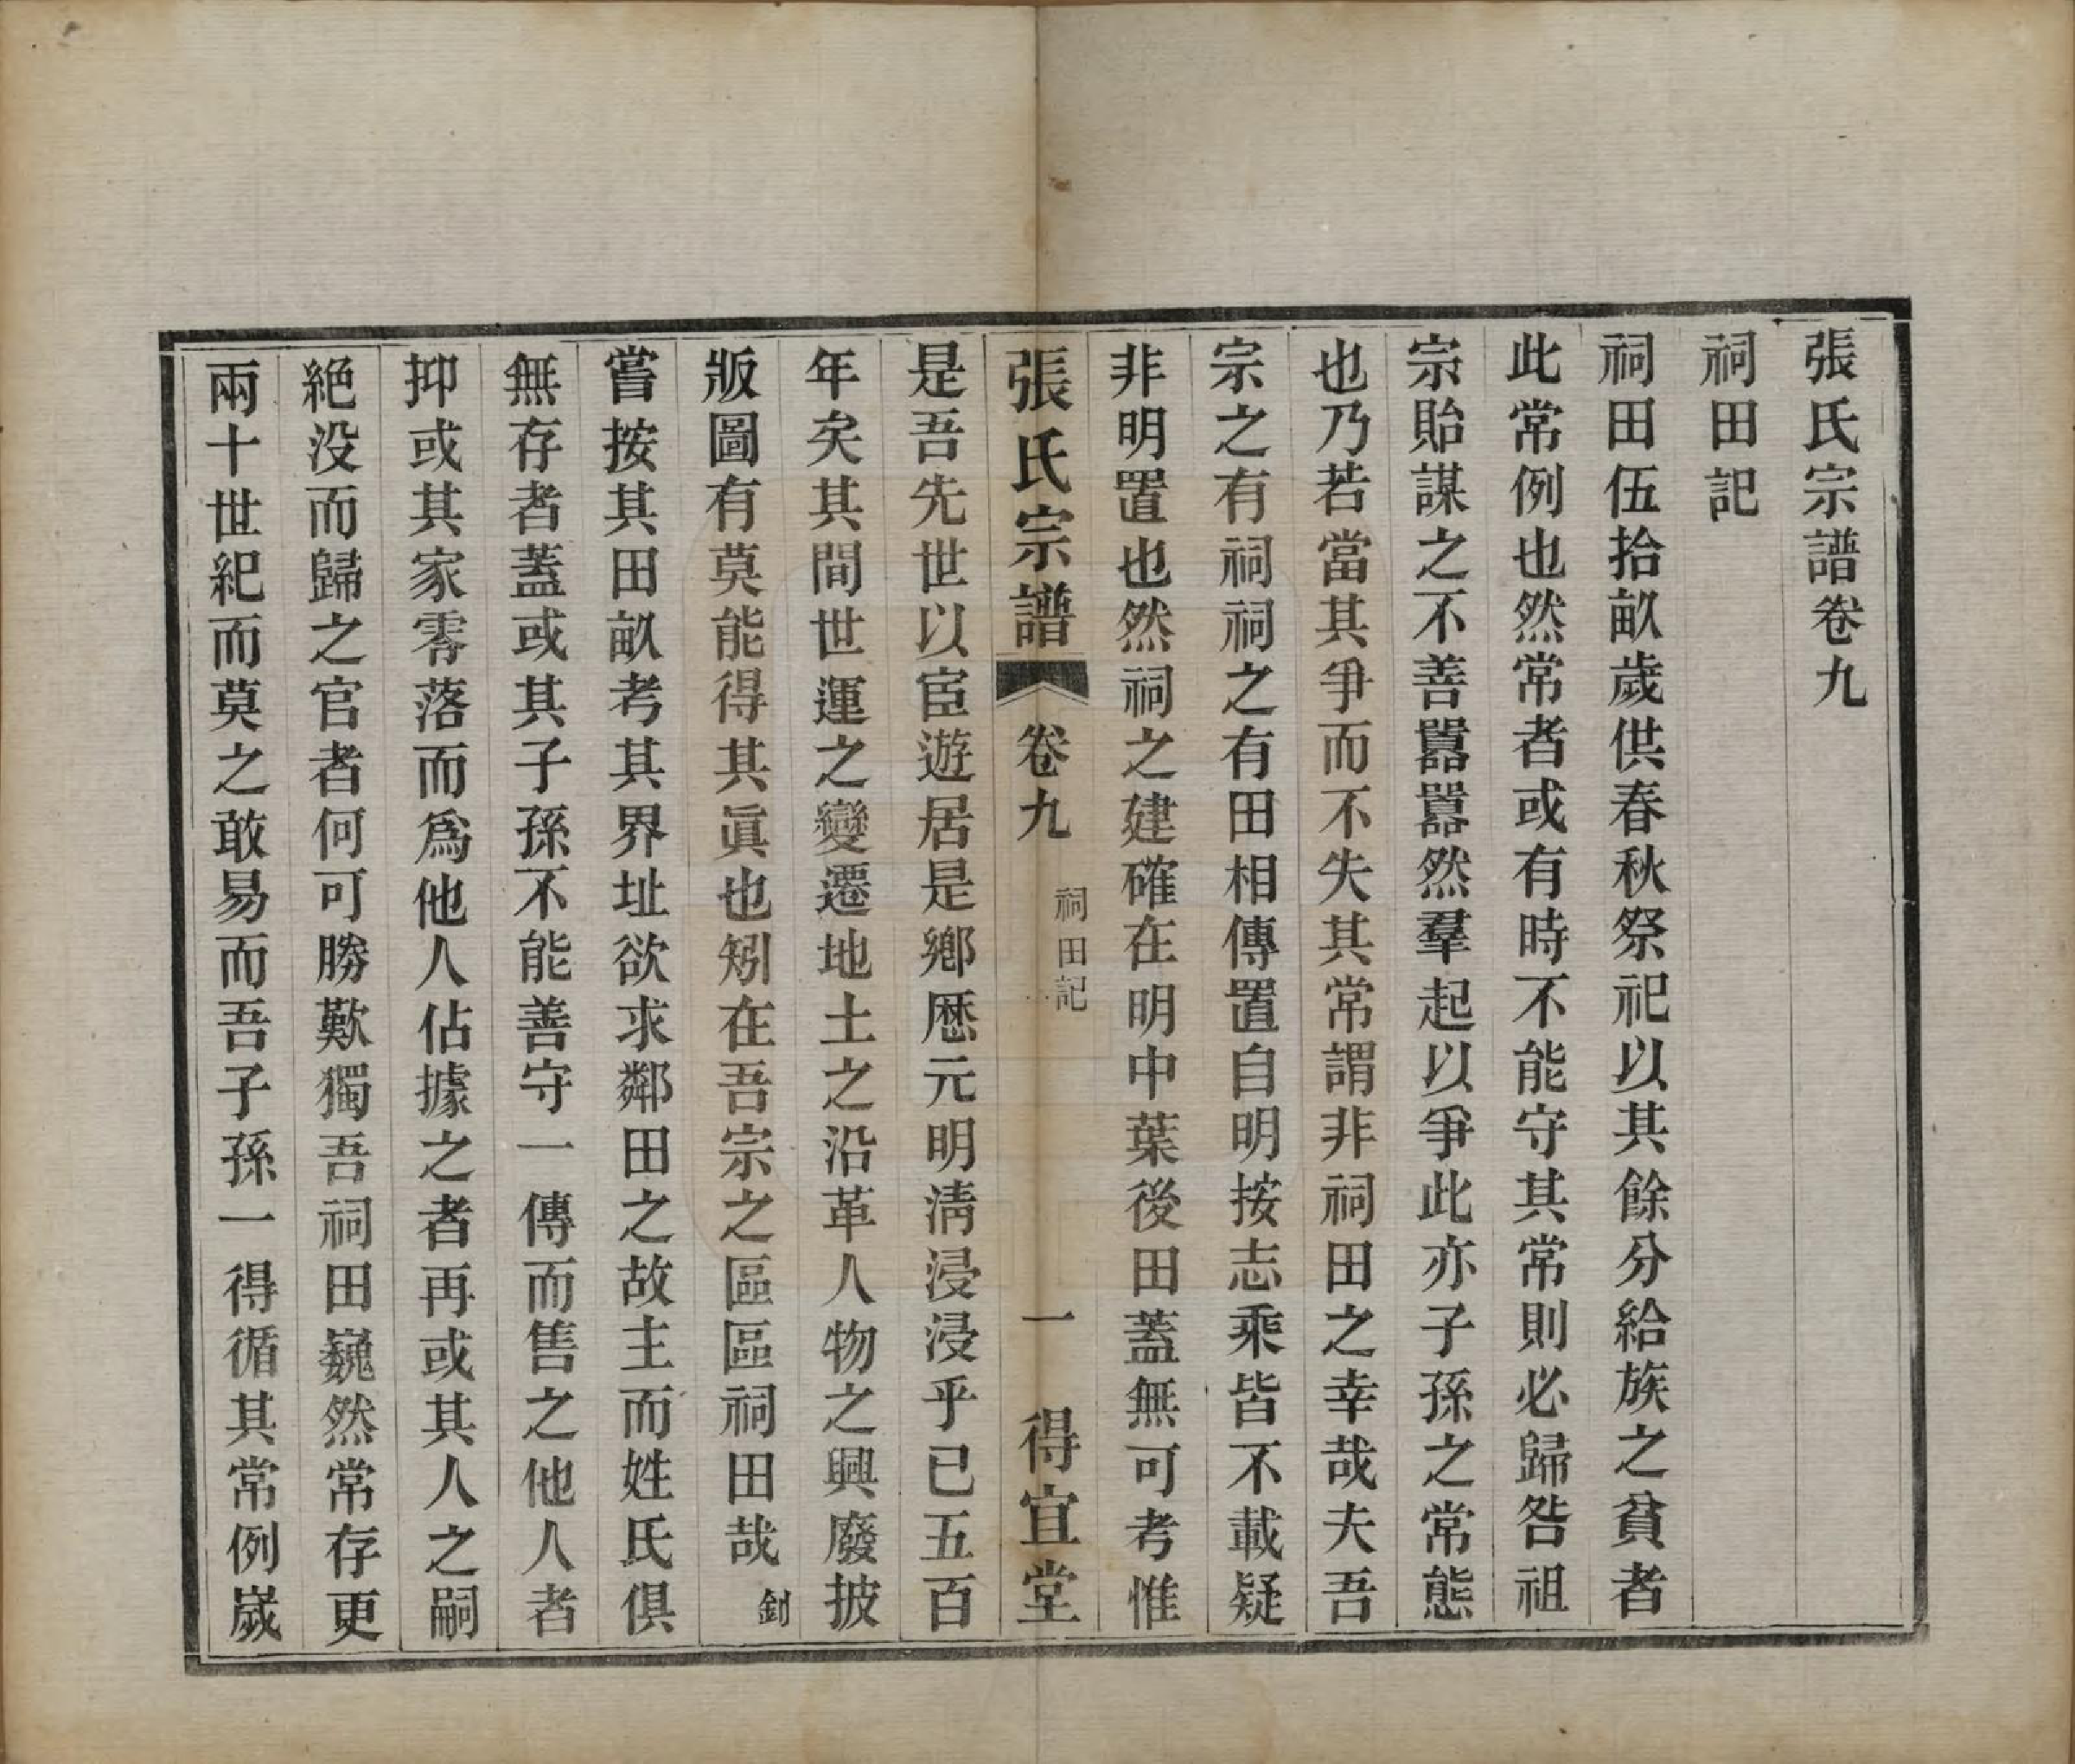 張氏宗譜卷九
祠田記
祠田伍拾畝歲供春秋祭祀以其餘分給族之貧者
此常例也然常者或有時不能守其常則必歸咎祖
宗貽謀之不善囂囂然羣起以爭此亦子孫之常態
也乃若當其爭而不失其常謂非祠田之幸哉夫吾
宗之有祠祠之有田相傳置自明按志乘皆不載疑
非明置也然祠之建確在明中葉後田蓋無可考惟
張氏宗譜 卷九 祠田記 一 得宜堂
是吾先世以宦遊居是鄉歷元明淸浸浸乎已五百
年矣其間世運之變遷地土之沿革人物之興廢披
版圖有莫能得其眞也矧在吾宗之區區祠田哉 釗
嘗按其田畝考其界址欲求鄰田之故主而姓氏俱
無存者蓋或其子孫不能善守一傳而售之他人者
抑或其家零落而爲他人佔據之者再或其人之嗣
絕没而歸之官者何可勝歎獨吾祠田巍然常存更
兩十世紀而莫之敢易而吾子孫一得循其常例歲